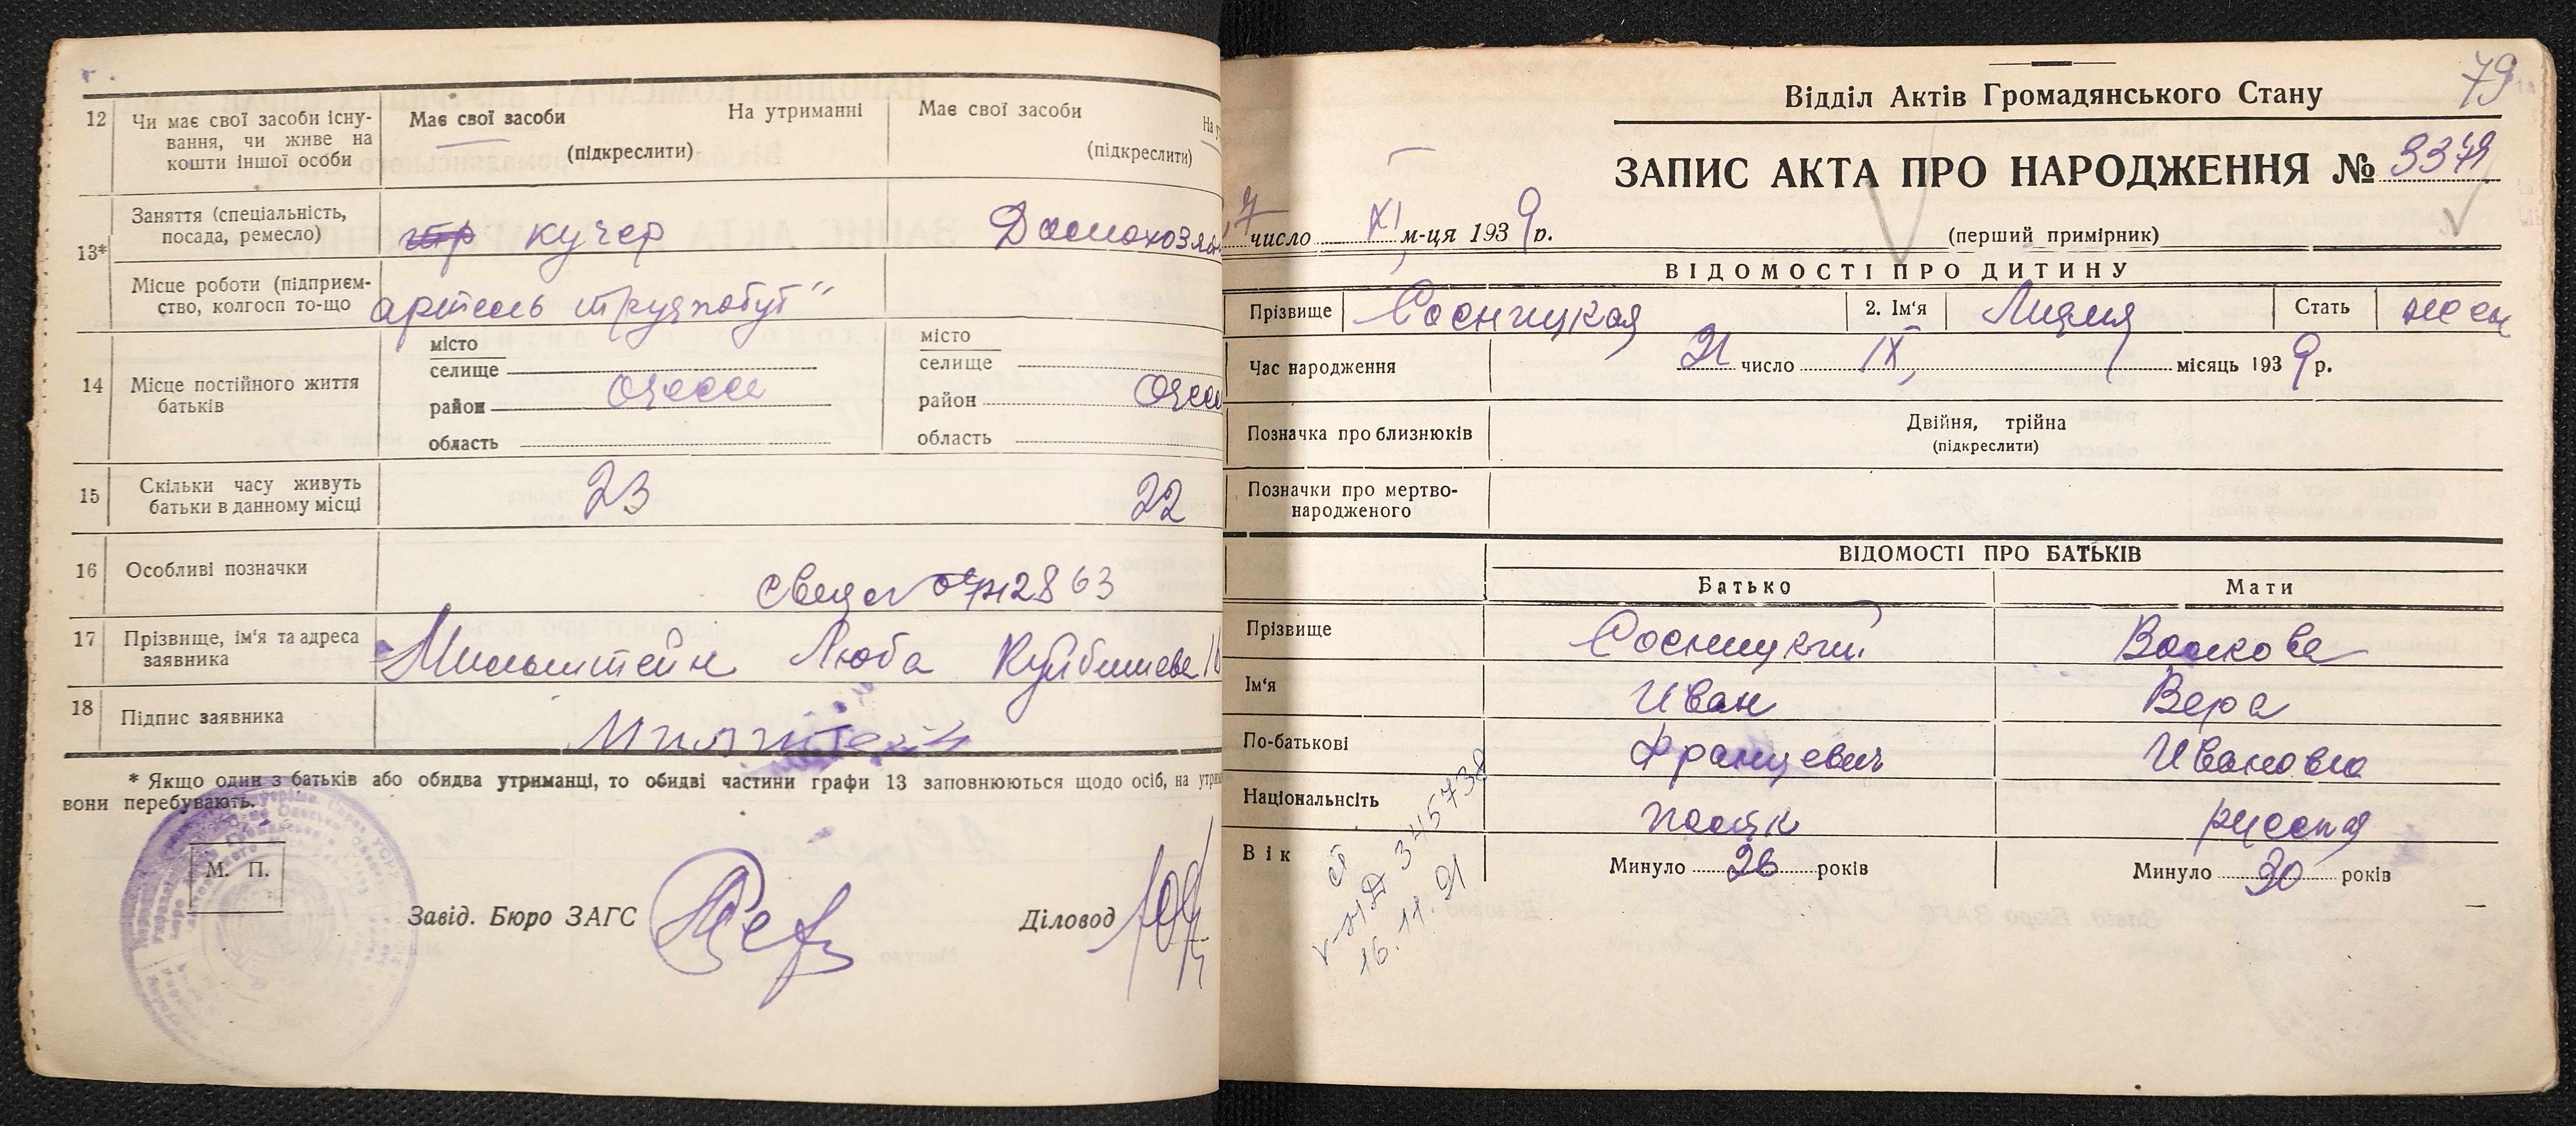 12 Чи має свої засоби існу-
вання, чи живе на
кошти іншої особи
Має свої засоби На утриманні
(підкреслити)
Має свої засоби
(підкреслити)
13* Заняття (спеціальність,
посада, ремесло)
кучер
Місце роботи (підприєм-
ство, колгосп то-що
артель трудпобут"
14 Місце постійного життя
батьків
місто
селище
район Одесса
область
місто
селище
район
область
15 Скільки часу живуть
батьки в данному місці
23 22
16 Особливі позначки
17 Прізвище, ім'я та адреса
заявника
Мильштейн Люба Куйбишева
18 Підпис заявника
* Якщо один з батьків або обидва утриманці, то обидві частини графи 13 заповнюються щодо осіб, на
вони перебувають.
М. П.
Завід. Бюро ЗАГС
Діловод
79
Відділ Актів Громадянського Стану
ЗАПИС АКТА ПРО НАРОДЖЕННЯ № 3379
7 число XI м-ця 1939 р.
(перший примірник)
ВІДОМОСТІ ПРО ДИТИНУ
Прізвище Сосницкая 2. Ім'я Лидия Стать жен
Час народження 21 число IX місяць 1939 р.
Позначка про близнюків
Двійня, трійна
(підкреслити)
Позначки про мертво-
народженого
ВІДОМОСТІ ПРО БАТЬКІВ
Батько Мати
Прізвище Сосницкий Волкова
Ім'я Иван Вера
По-батькові Францевич Ивановна
Національнсіть поляк русская
Вік Минуло 26 років Минуло 30 років
345738
16.11.91